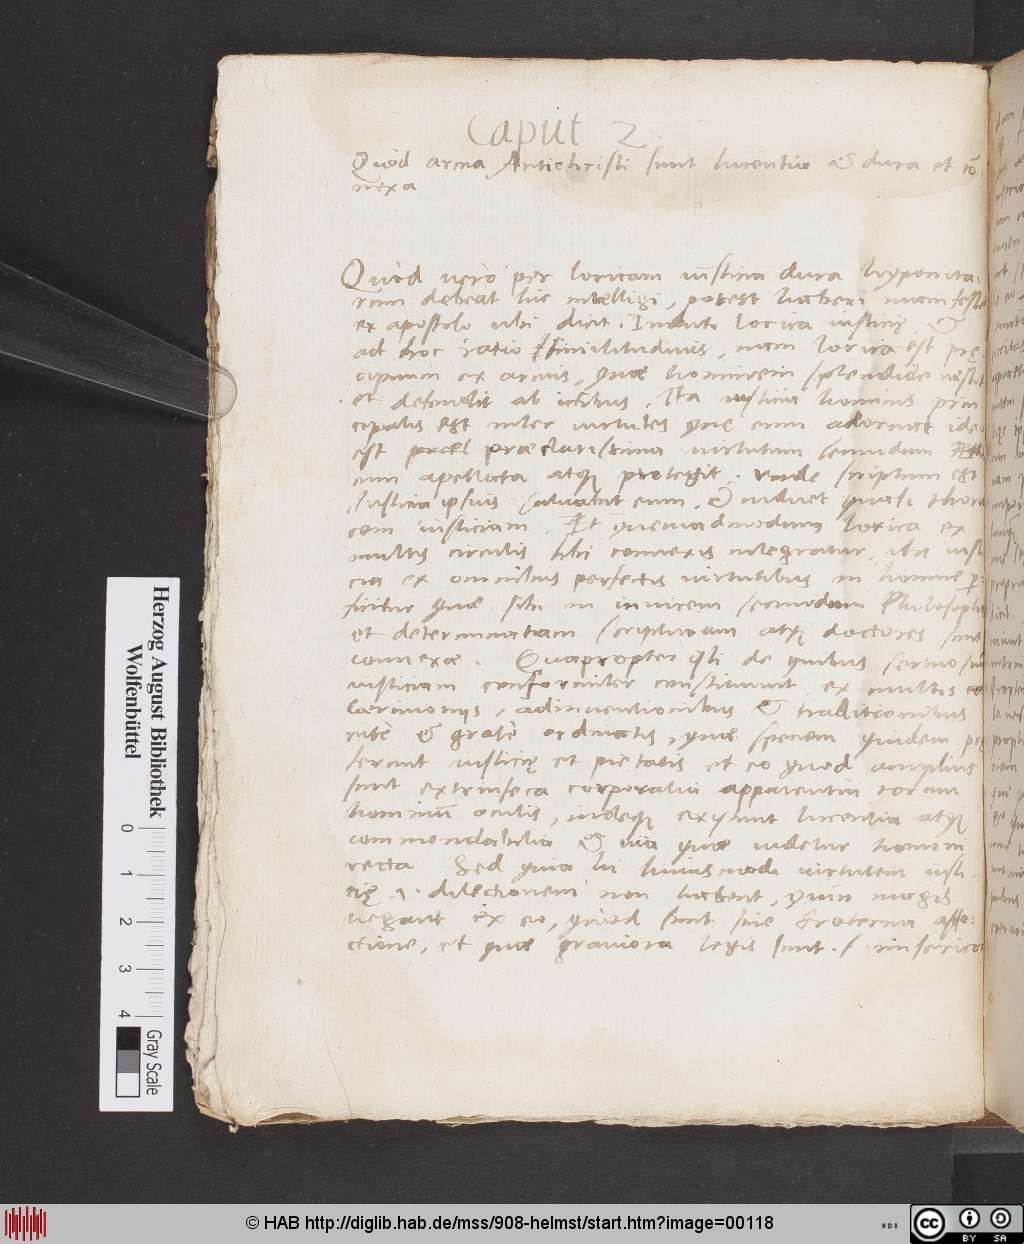 Caput 2
Quòd arma Antichristi sunt lucentia & dura et cō-
nexa
Quòd verò per loricam iusticia dura hypocrita-
rum debeat hic intelligi, potest haberi manifeste
ex apostolo ubi dicit. Induti lorica iusticię, &
ad hoc ratio similitudinis, nam lorica est prę
cipuum ex armis, quae hominem splendide vestit
et defendit ab ictibus, Ita iusticia hominis prin
cipalis est inter virtutes quę eum adornat ide
est praeclarissima virtutum secundum
num apellata atque protegit. vnde scriptum est
Iusticia ipsius saluabit eum, & induet quasi thora
cem iusticiam. Et quemadmodum lorica ex
multis circulis sibi connexis integratur, ita iusti
cia ex omnibus perfectis virtutibus in homine p
ficitur quae sibi in inuicem secundum Philosophū
et determinatiam scripturam atque doctores sunt
connexae. Quapropter isti de quibus sermo
iusticiam conformiter constituunt ex multis
caerimonijs, adinuentionibus & traditionibus
ritè & gratè ordinatis, quae speciem quidem prę
ferunt iusticię et pietatis et eo quod amplius
sunt extrinseca corporalia apparentia coram
hominū oculis, indeque existunt lucentia atque
commendabilia & via quae videtur homini
recta Sed quia hi huiusmodi virtutem iusti-
tię dilectionem non habent, quin magis
negant ex eo, quòd sunt sine fraterna affe-
ctione, et quae grauiora legis sunt. s. misericor
Herzog August Bibliothek
Wolfenbüttel
0 1 2 3 4
Gray Scale
© HAB http://diglib.hab.de/mss/908-helmst/start.htm?image=00118
WDB
cc BY SA